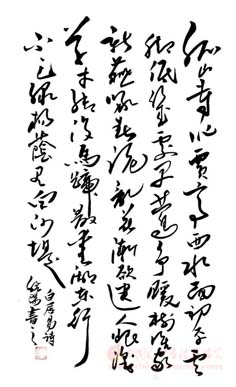 孤山寺北賈亭西水面初平雲
脚低幾處早鶯爭暖樹誰家
新燕啄春泥亂花漸欲迷人眼淺
草才能沒馬蹄最愛湖東行
不足綠楊蔭里白沙堤
白居易詩
書之